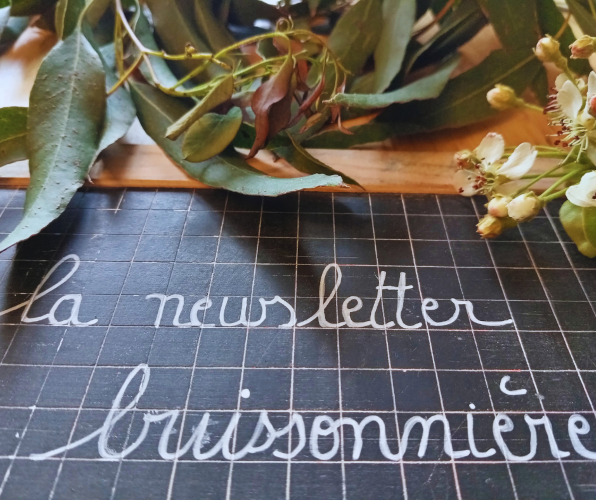 la newsletter
buissonnière